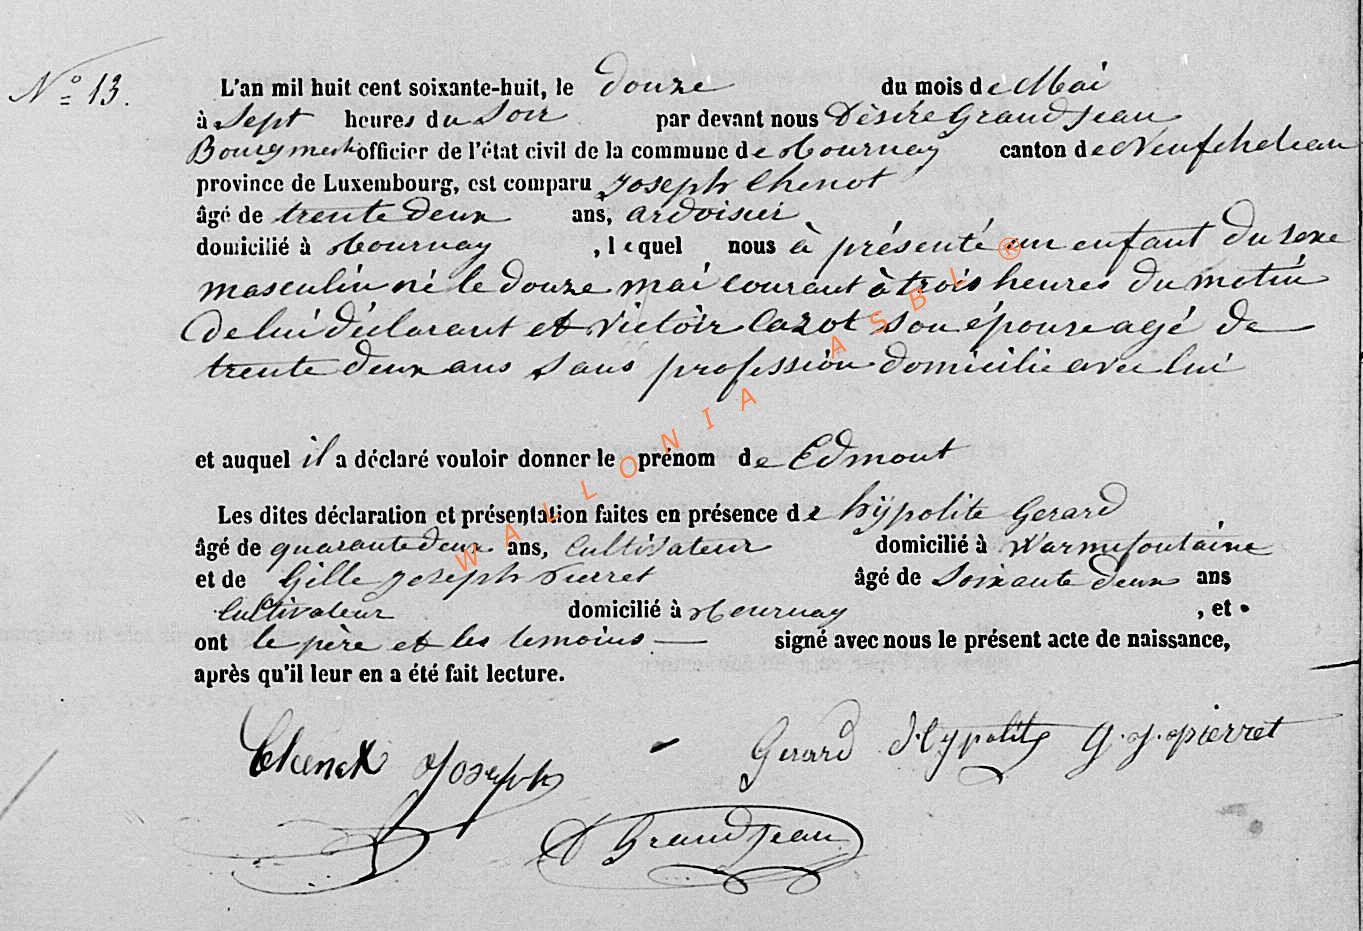 N° 13.
L'an mil huit cent soixante-huit, le douze du mois de Mai
à Sept heures du Soir par devant nous Désiré Grandjean
Bourgmestre officier de l'état civil de la commune de Tournay canton de Neufchateau
province de Luxembourg, est comparu Joseph Chenot
âgé de trente deux ans, ardoisier
domicilié à Tournay , lequel nous à présenté un enfant du sexe
masculin né le douze mai courant à trois heures du matin
de lui déclarant et Victoir Cazot son épouse agé de
trente deux ans Sans profession domicilié avec lui
et auquel il a déclaré vouloir donner le prénom de Edmont
Les dites déclaration et présentation faites en présence de hÿpolite Gerard
âgé de quarante deux ans, Cultivateur domicilié à Warmifontaine
et de Gille Joseph Pierret âgé de Soixante deux ans
Cultivateur domicilié à Tournay , et
ont le père et les temoins signé avec nous le présent acte de naissance,
après qu'il leur en a été fait lecture.
Chenot Joseph Gerard Hypolite G. J. pierret
D GrandJean
WALLONIA ASBL ®